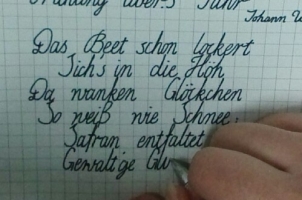 Frühling über's Jahr
Johann W
Das Beet schon lockert
Sich's in die Höh
Da wanken Glöckchen
So weiß wie Schnee;
Safran entfaltet
Gewaltige Glu